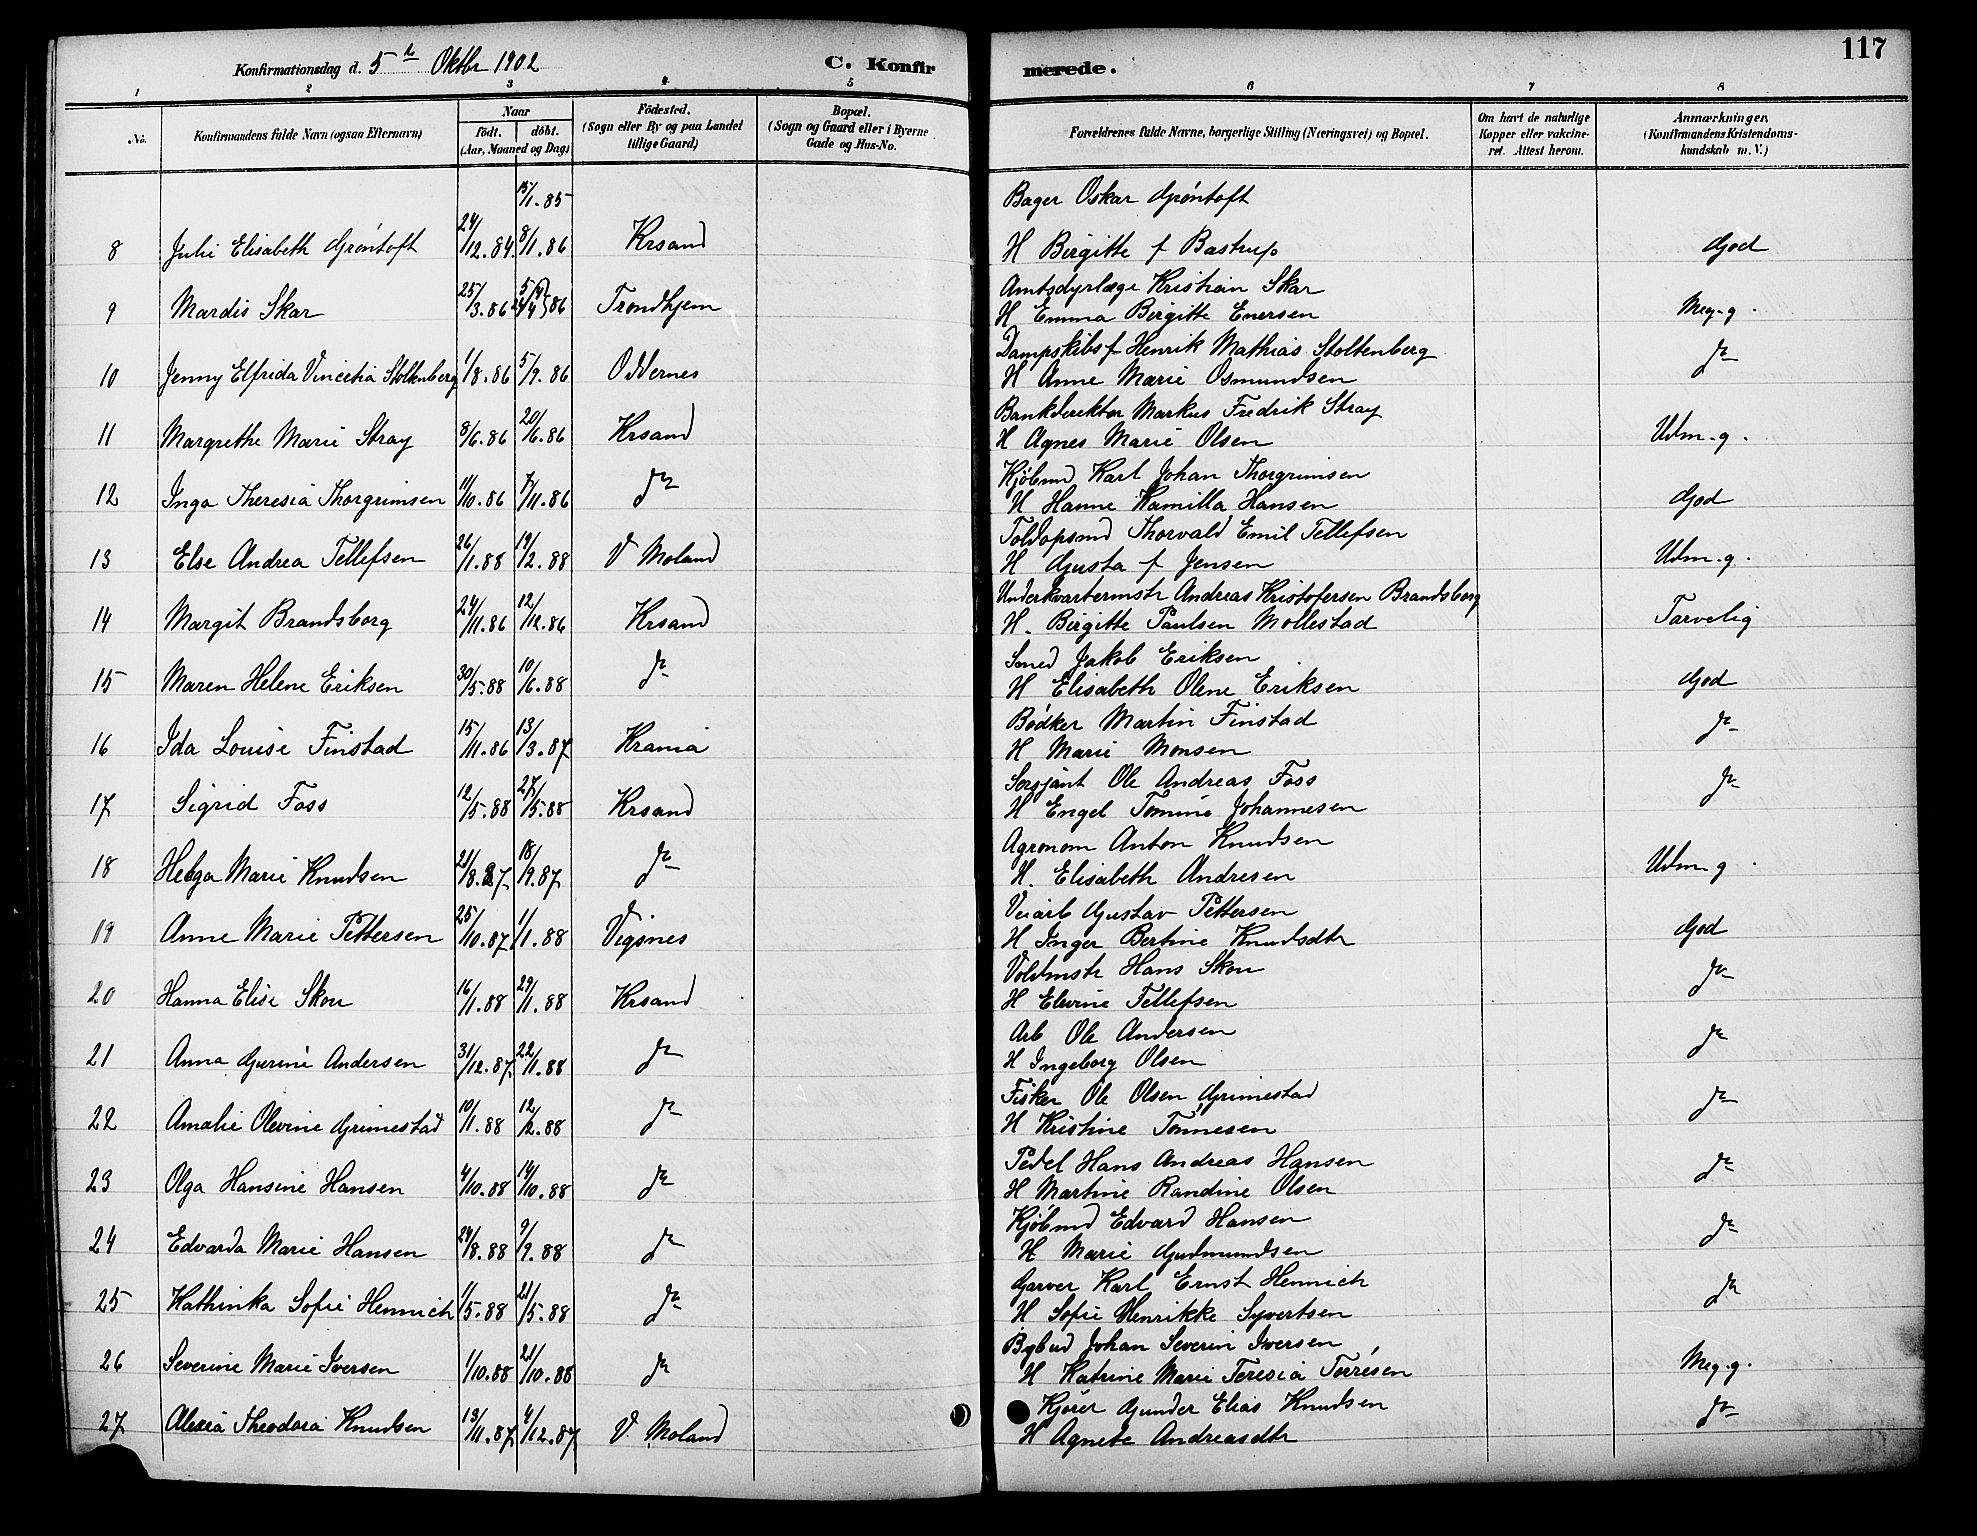 117
Konfirmationsdag d. 5te Oktbr 1902 C. Konfir merede.
1 2 3 4 5 6 7 8
No. Konfirmandens fulde Navn (ogsaa Efternavn) Naar födt. döbt. (Aar, Maaned og Dag) Födested. (Sogn eller By og paa Landet tillige Gaard) Bopæl. (Sogn og Gaard eller i Byerne Gade og Hus-No. Forældrenes fulde Navne, borgerlige Stilling (Næringsvei) og Bopæl. Om havt de naturlige Kopper eller vakcineret. Attest herom. Anmærkninger, (Konfirmandens Kristendomskundskab m. V.)
15/1.85 Bager Oskar Grøntoft
8 Julie Elisabeth Grøntoft 24/12.84. 8/1.86 Krsand H Birgitte f Bastrup God
Amtsdyrlæge Kristian Skar
9 Mardis Skar 25/3.86 Trondhjem H Emma Birgitte Enersen Meg. g.
Dampskibsf Henrik Mathias Stoltenberg
10 Jenny Elfrida Vincetia Stoltenberg 1/8.86 5/9.86 Oddernes H Anne Marie Osmundsen do
Bankdirektør Markus Fredrik Stray
11 Margrethe Marie Stray 8/6.86 20/6.86 Krsand H Agnes Marie Olsen Udm. g.
Kjøbmd Karl Johan Thorgrimsen
12 Inga Theresia Thorgrimsen 11/10.86 7/11.86 do H Hanne Kamilla Hansen God
Toldopsmd Thorvald Emil Tellefsen
13 Else Andrea Tellefsen 26/1.88 19/2.88 V Moland H Gusta f Jensen Udm. g.
Underkvartermstr Andreas Kristofersen Brandsborg
14 Margit Brandsborg 24/11.86 12/12.86 Krsand H. Birgitte Paulsen Mollestad Tarvelig
Smed Jakob Eriksen
15 Maren Helene Eriksen 30/5.88 10/6.88 do H Elisabeth Olene Eriksen God
Bødker Martin Finstad
16 Ida Louise Finstad 15/11.86 13/3.87 Krania H Marie Monsen do
Sersjant Ole Andreas Foss
17 Sigrid Foss 12/5.88 27/5.88 Krsand H Engel Tomine Johannesen do
Agronom Anton Knudsen
18 Helga Marie Knudsen 21/8.87 18/9.87 do H. Elisabeth Andresen Udm. g.
Veiarb Gustav Pettersen
19 Anne Marie Pettersen 25/10.87 1/1.88 Vigsnes H Inger Bertine Knudsdtr God
Voldmstr Hans Skou
20 Hanna Elise Skou 16/1.88 29/1.88 Krsand H Elvine Tellefsen do
Arb Ole Andersen
21 Anna Gurine Andersen 31/12.87 22/1.88 do H Ingeborg Olsen do
Fisker Ole Olsen Grimestad
22 Amalie Olevine Grimestad 10/1.88 12/2.88 do H Kristine Tønnesen do
Pedel Hans Andreas Hansen
23 Olga Hansine Hansen 4/10.88 14/10.88 do H Martine Randine Olsen do
Kjøbmd Edvard Hansen
24 Edvarda Marie Hansen 24/8.88 9/9.88 do H Marie Gudmundsen do
Garver Karl Ernst Hennich
25 Kathinka Sofie Hennich 1/5.88 21/5.88 do H Sofie Henrikke Syvertsen do
Bybud Johan Severin Iversen
26 Severine Marie Iversen 1/10.88 21/10.88 do H Katrine Marie Teresia Torresen Meg. g.
Kjører Gunder Elias Knudsen
27 Alexia Theodora Knudsen 13/11.87 4/12.87 V. Moland H Agnete Andreasdtr do